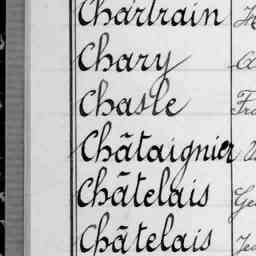 Chartrain
Chary
Chasle
Châtaignier
Châtelais
Châtelais